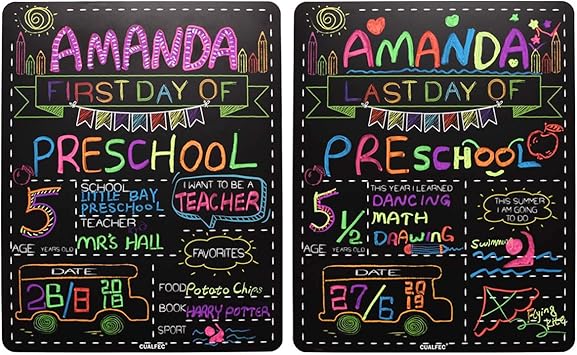 AMANDA
FIRST DAY OF
PRESCHOOL
5
AGE YEARS OLD
SCHOOL
LITTLE BAY
PRESCHOOL
TEACHER
MR'S HALL
I WANT TO BE A
TEACHER
DATE
26/8 2018
FAVORITES
FOOD Potato Chips
BOOK HARRY POTTER
SPORT
CUALFEC
AMANDA
LAST DAY OF
PRESCHOOL
5 1/2
AGE YEARS OLD
THIS YEAR I LEARNED
DANCING
MATH
DRAWING
THIS SUMMER
I AM GOING
TO DO
Swimming
DATE
27/6 2019
Flying
kite
CUALFEC